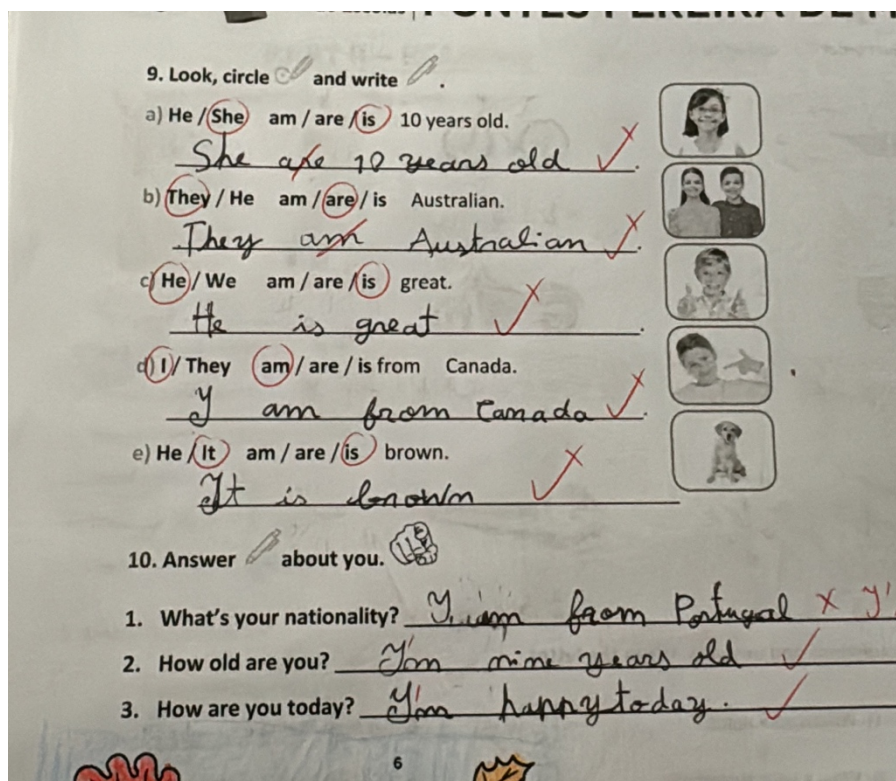 PONTES PEREIRA DE
9. Look, circle and write .
a) He / She am / are / is 10 years old.
She are 10 years old .
b) They / He am / are / is Australian.
They am Australian .
c) He / We am / are / is great.
He is great .
d) I / They am / are / is from Canada.
I am from Canada .
e) He / It am / are / is brown.
It is brown
10. Answer about you.
1. What's your nationality? I am from Portugal x I'
2. How old are you? I'm nine years old
3. How are you today? I'm happy today.
6